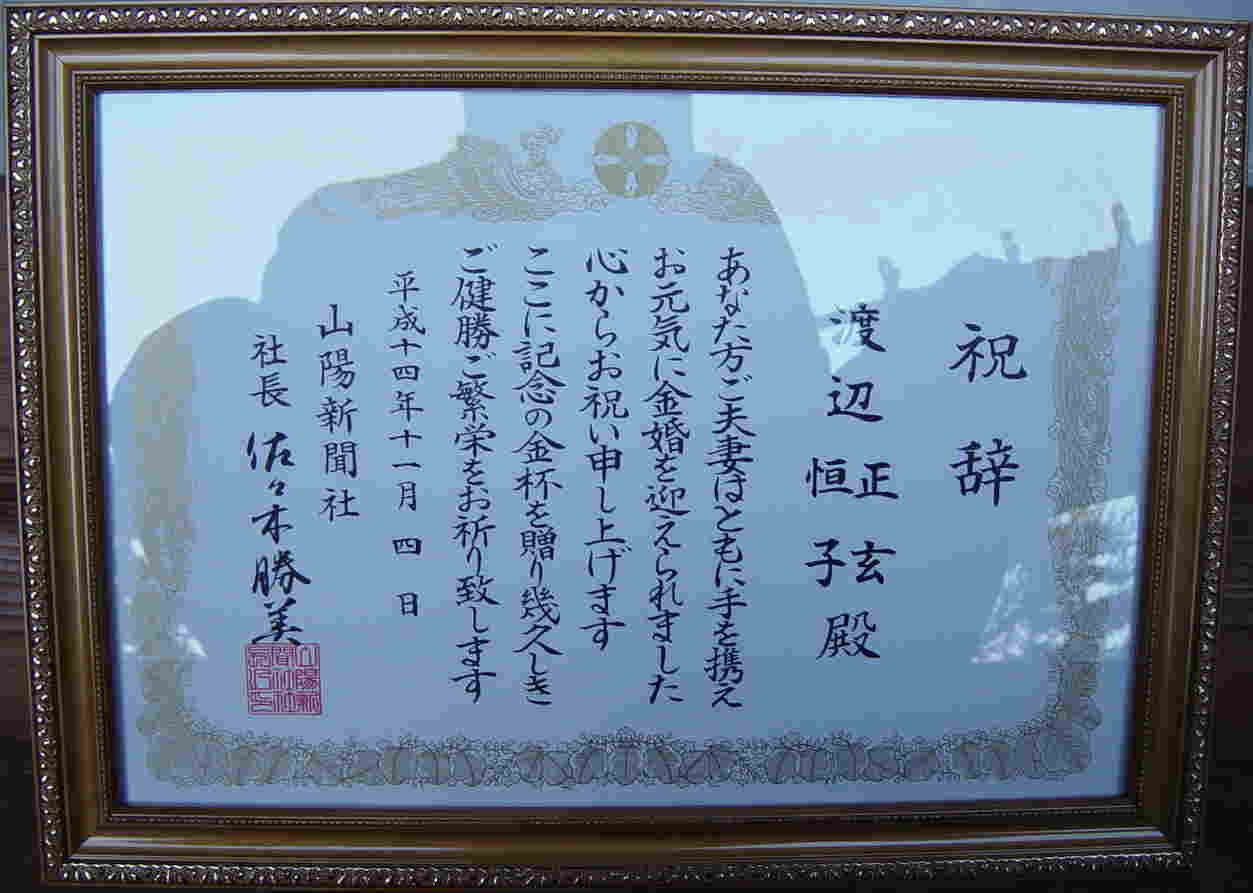 祝辞
渡辺 正玄 殿
恒子
あなた方ご夫妻はともに手を携え
お元気に金婚を迎えられました
心からお祝い申し上げます
ここに記念の金杯を贈り幾久しき
ご健勝ご繁栄をお祈り致します
平成十四年十一月四日
山陽新聞社
社長 佐々木勝美